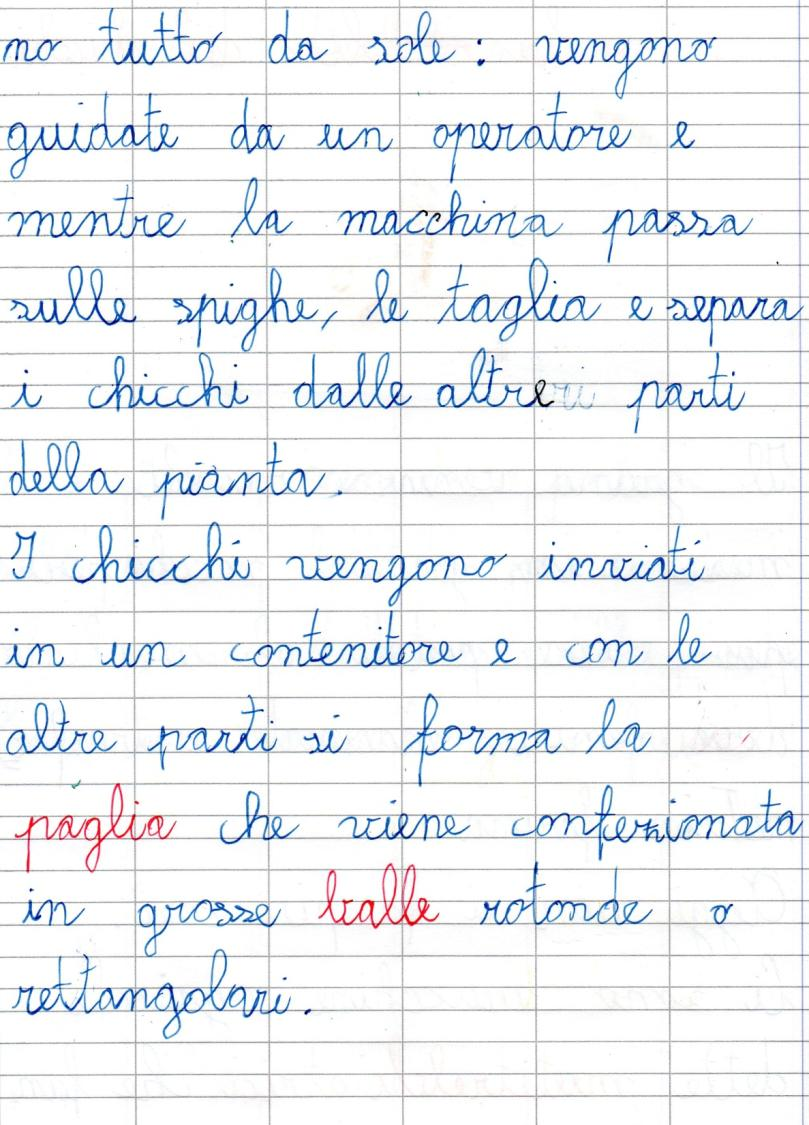 no tutto da sole: vengono
guidate da un operatore e
mentre la macchina passa
sulle spighe, le taglia e separa
i chicchi dalle altre parti
della pianta.
I chicchi vengono inviati
in un contenitore e con le
altre parti si forma la
paglia che viene confezionata
in grosse balle rotonde o
rettangolari.